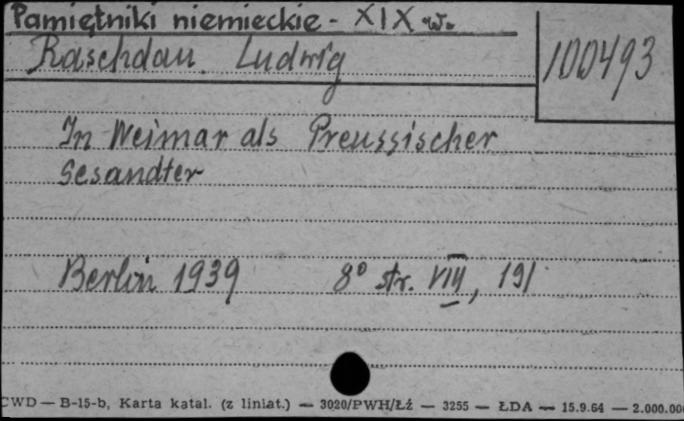 Pamiętniki niemieckie - XIX w.
Raschdau Ludwig
100493
In Weimar als Preussischer
Gesandter
Berlin 1939 8° str. VIII, 191
CWD — B-15-b, Karta katal. (z liniat.) — 3020/PWH/Łź — 3255 — ŁDA — 15.9.64 — 2.000.000